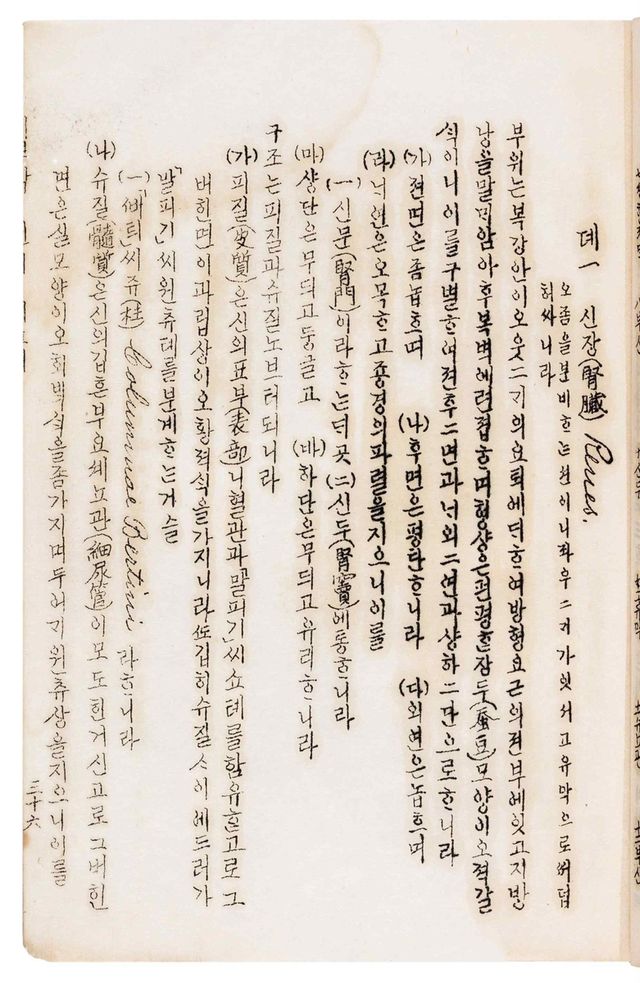 뎨一 신장(腎臟) Rnes.
오좀을분비ᄒᆞᄂᆞᆫ션이니좌우二기가잇서고유막으로써덥
혀싸니라
부위ᄂᆞᆫ복강안이오웃ᄃᆞ기의요퇴에ᄃᆡᄒᆞ여방형요근의젼부에잇고지방
낭을말믜암아후복벽에련졉ᄒᆞ며형샹은편평ᄒᆞᆫ잠두(蚕豆)모양이오젹갈
식이니이를구별ᄒᆞ여젼후二면과ᄂᆡ외二연과샹하二단으로ᄒᆞ니라
(가)젼면은좀놉흐며 (나)후면은평탄ᄒᆞ니라 (다)외연은놉흐며
(라)ᄂᆡ연은오목ᄒᆞ고죵경의파렬을지으니이를
(一)신문(腎門)이라ᄒᆞᄂᆞᆫᄃᆡ곳(二)신두(腎竇)에통ᄒᆞ니라
(마)샹단은무듸고둥글고 (바)하단은무듸고유리ᄒᆞ니라
구조ᄂᆞᆫ피질과슈질노브터되니라
(가)피질(皮質)은신의표부(表部)니혈관과「말피기」씨쇼톄를함유ᄒᆞᆫ고로그
버힌면이과립샹이오황젹식을가지니라ᄯᅩ깁히슈질ᄉᆞ이에드러가
「말피기」씨원츄톄를분계ᄒᆞᄂᆞᆫ거슬
(一)「ᄲᅥ틔」씨쥬(柱) Columnae Bertini 라ᄒᆞ니라
(나)슈질(髓質)은신의깁흔부요셰뇨관(細尿管)이모도힌거신고로그버힌
면은실모양이오회ᄇᆡᆨ식을좀가지며두어기원츄상을지으니이를
三十六